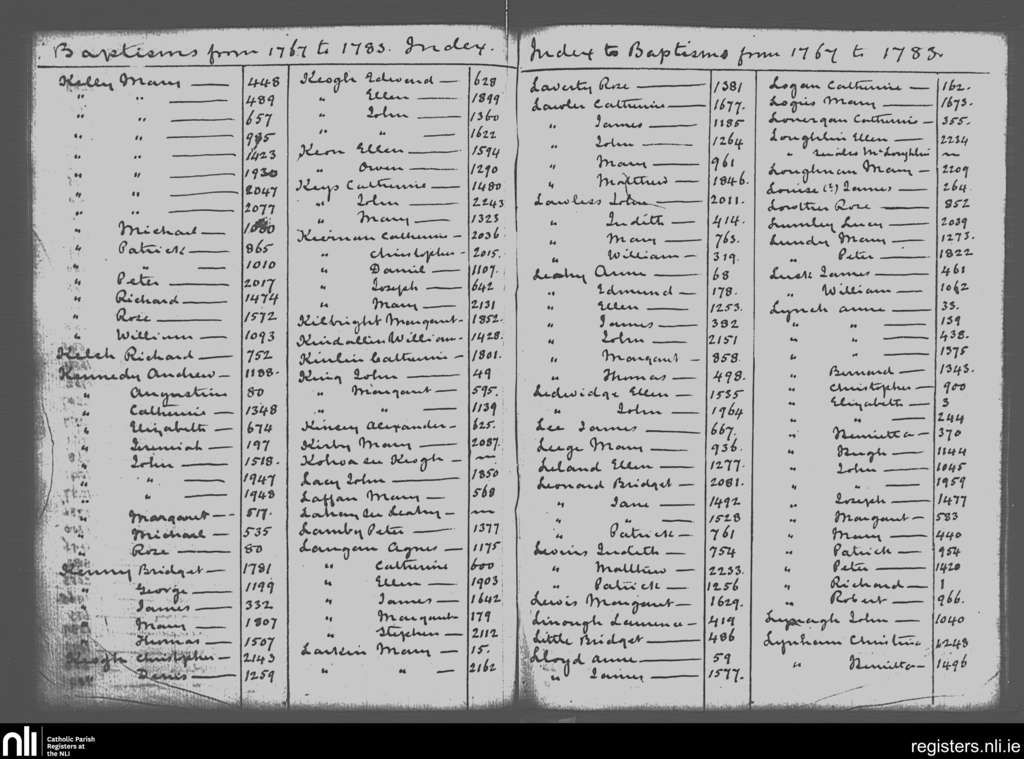 Baptisms from 1767 to 1783. Index.
Kelly Mary — 448
" " — 489
" " — 657
" " — 985
" " — 1423
" " — 1930
" " — 2047
" " — 2077
" Michael —
" Patrick — 865
" " — 1010
" Peter — 2017
" Richard — 1474
" Rose — 1572
" William — 1093
Kelsh Richard — 752
Kennedy Andrew — 1188.
" Augustine 80
" Catherine — 1348
" Elizabeth — 674
" Jeremiah — 197
" John — 1518.
" " — 1947
" " — 1948
" Margaret — 517.
" Michael — 535
" Rose — 80
Kenny Bridget — 1781
" George — 1199
" James — 332
" Mary — 1807
" Thomas — 1507
Keogh Christopher — 2143
" Denis — 1259
Keogh Edward — 628
" Ellen — 1899
" John — 1360
" " — 1622
Keon Ellen — 1594
" Owen — 1290
Keys Catherine — 1480
" John — 2243
" Mary — 1323
Kiernan Catherine — 2036
" Christopher — 2015.
" Daniel — 1107.
" Joseph — 642
" Mary — 2131
Kilbright Margaret — 1852.
Kindallin William — 1428.
Kinlin Catherine — 1801.
King John — 49
" Margaret — 595.
" " — 1139
Kincey Alexander — 625.
Kirby Mary — 2087.
Kohoa see Keogh — "
Lacy John — 1850
Laffan Mary — 568
Lahay see Leahy — "
Lamby Peter — 1377
Langan Agnes — 1175
" Catherine 600
" Ellen — 1903
" James — 1642
" Margaret 179
" Stephen — 2112
Larkin Mary — 15.
" " — 2162
Index to Baptisms from 1767 to 1783.
Laverty Rose — 1381
Lawler Catherine — 1677.
" James — 1185
" John — 1264
" Mary — 961
" Matthew — 1846.
Lawless John — 2011.
" Judith — 414.
" Mary — 763.
" William — 319.
Leahy Anne — 68
" Edmund — 178.
" Ellen — 1253.
" James — 382
" John — 2151
" Margaret — 858.
" Thomas — 498.
Ledwidge Ellen — 1535
" John — 1964
Lee James — 667.
Leege Mary — 936.
Leland Ellen — 1277.
Leonard Bridget — 2081.
" Jane — 1492
" " — 1528
" Patrick — 761
Lewins Judith — 754
" Matthew — 2233.
" Patrick — 1256
Lewis Margaret — 1629.
Linough Laurence — 419
Little Bridget — 486
Lloyd Anne — 59
" James — 1577.
Logan Catherine — 162.
Logies Mary — 1673.
Lonergan Catherine — 355.
Loughlin Ellen — 2234
" see also McLoughlin "
Loughman Mary — 2209
Louise (?) James — 264
Lowther Rose — 852
Lumley Lucy — 2039
Lundy Mary — 1273.
" Peter — 1822
Lusk James — 461
" William — 1062
Lynch Anne — 33.
" " — 139
" " — 438.
" " — 1375
" Bernard — 1343.
" Christopher — 900
" Elizabeth — 3
" " — 244
" Henrietta — 370
" Hugh — 1144
" John — 1045
" " — 1959
" Joseph — 1477
" Margaret — 583
" Mary — 440
" Patrick — 954
" Peter — 1420
" Richard — 1
" Robert — 966.
John — 1040
Lynham Christina 2248
" Henrietta — 1496
nli
Catholic Parish
Registers at
the NLI
registers.nli.ie